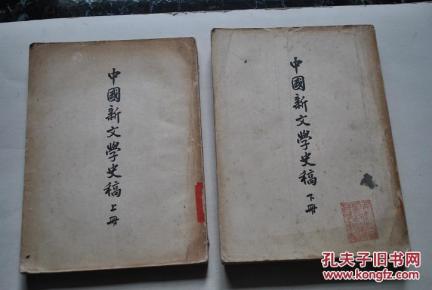 中國新文學史稿 上册
中國新文學史稿 下册
孔夫子旧书网
www.kongfz.com